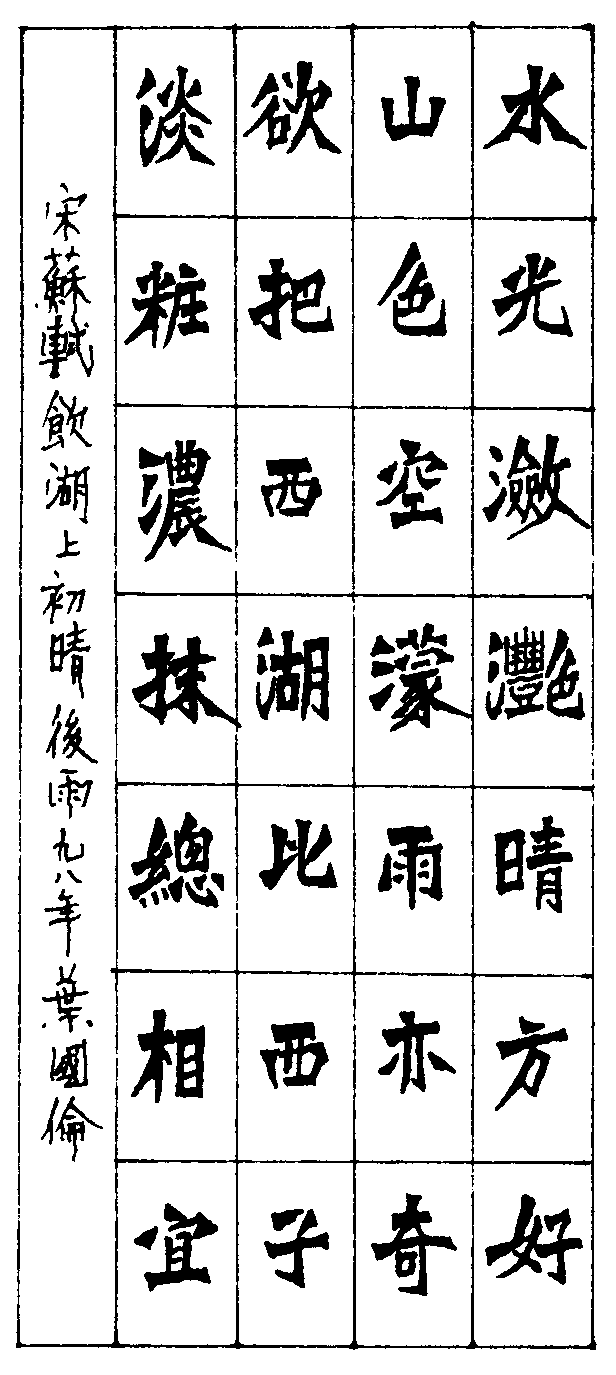 水光瀲灩晴方好
山色空濛雨亦奇
欲把西湖比西子
淡粧濃抹總相宜
宋蘇軾飲湖上初晴後雨九八年葉國倫